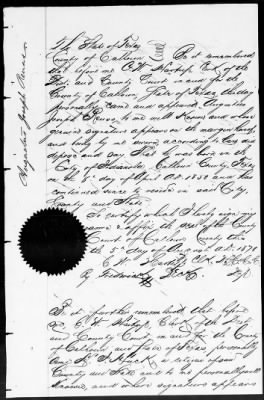 The State of Texas
County of Calhoun Be it remembered
that before me C. H. Clk of the
Dist. and County Court in and for the
County of Calhoun, State of Texas this day
personally came and appeared Augustus
Joseph to me well known and whose
genuine signature appears on the margin hereof
and being by me sworn according to law did
depose and say that he was born in the
City of Indianola Calhoun County, Texas
on the day of April A.D. 1852 and has
continued since to reside in said City,
County and State
To certify which I hereby sign my
name & affix the seal of the County
Court of Calhoun County this
the day of August A.D. 187
C. H. Clk
By
Augustus Joseph
Be it further remembered that before
me C. H. Clerk of the Dist
and County Court in and for the County
of Calhoun and State of Texas, personally
came a citizen of said
County and State and to me personally well
known, and whose signature appears